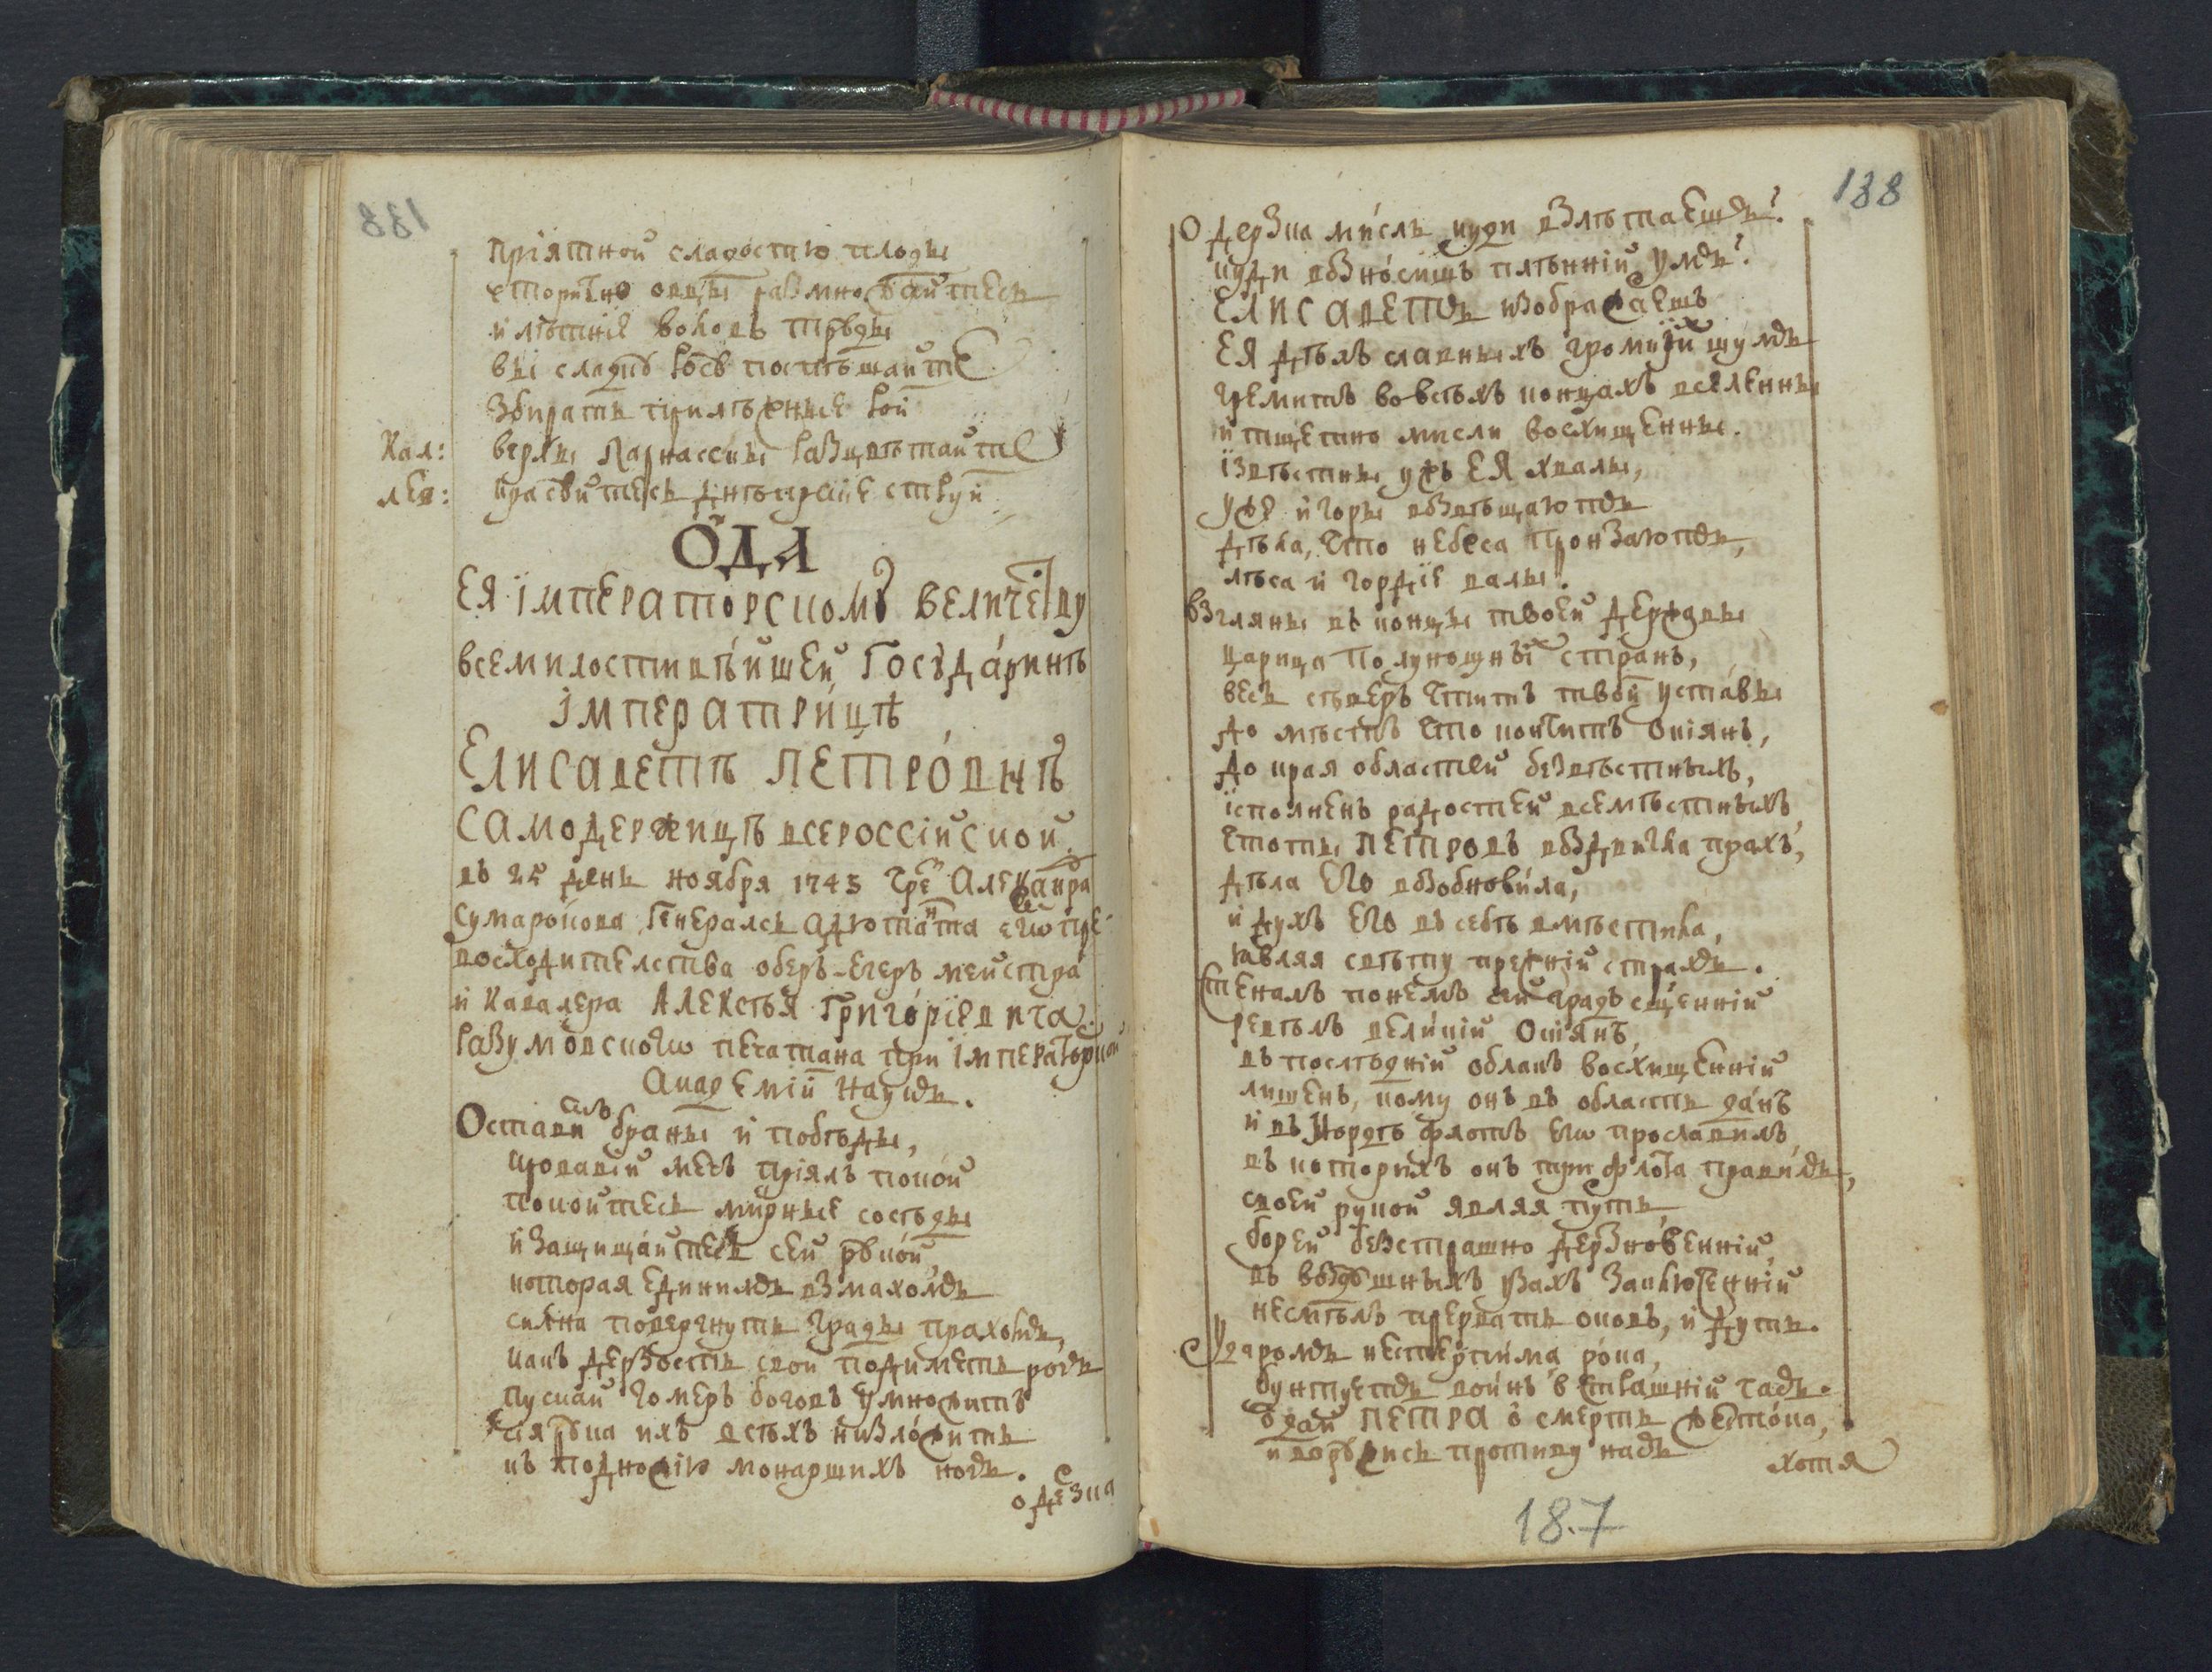 138
Прїятной сладостїю плоды
сторично овцы размножайтесь
и лѣтнїе воловъ труды
вы сладкѡ поспѣшайте
Збирать прилѣжные
Кал: верхы Парнасскы разцвѣтайте
лев: красвитесь днѣпрскїе струи
ОДА
Ея Їмператорскому величеству
всемилостивѣйшей Государинѣ
Їмператрицѣ
Елисаветѣ Петровнѣ
самодержицѣ всероссїйской
въ 25 день ноября 1743 чре Алеѯандра
Сумарокова Генералсъ адютанта егѡ пре-
восходителства оберъ-егеръ мейстра
и Кавалера Алексѣя Григорїевича
Разумовскогѡ печатана при Їмператорской
Академїй Наукъ.
Оставимъ браны и побѣды,
кровавїй мечъ прїялъ покой
покойтесь мирные сосѣды
и защищайтесь сей рукой,
которая единимъ взмахомъ
силна повергнуть грады прахомъ,
какъ дерзость свой подиметъ рогъ
пускай Гомеръ боговъ умножитъ
сїя рука ихъ всѣхъ низложить
къ подножїю монаршихъ ногъ.
о дерзка
138
О дерзка мисль куди взлѣтаешъ?
куди возносишъ плѣннїй умъ?
ЕЛИСАВЕТЪ изображаешъ
Ея дѣлъ славныхъ громкїй шумъ
гремитъ во всѣхъ концахъ вселенны
и тщетно мисли восхищенны.
їзвѣстны ужъ Ея хвалы,
уже и горы возвѣщаютъ
дѣла, что небеса пронзаютъ,
лѣса и гордїе валы.
взгляны въ концы твоей державы
царица Полунощный странъ,
весь сѣверъ чтитъ твои уставы
До мѣстъ что кончитъ Окїянъ,
До края областей безвѣстныхъ,
їсполненъ радостей всемѣстныхъ
что ты ПЕТРОВЪ воздвигла прахъ,
дѣла Его возобновила,
и духъ Его въ себѣ вмѣстила,
являя свѣту прежнїй страхъ.
Стеналъ по немъ сей градъ сщеннїй
ревѣлъ великїй Окїянъ
въ послѣднїй облакъ восхищеннїй
лишенъ, кому онъ въ область данъ
и въ Норд флотъ Егѡ прославилъ
въ которихъ онъ три флота правилъ,
своей рукой являя путь
борей безстрашно дерзновеннїй,
въ воздушныхъ узахъ заключеннїй
несмѣлъ прервать оковъ, и дуть.
Ударомъ нестерпима рока,
бунтуетъ воинъ в страшнїй часъ.
ѡдай ПЕТРА о смерть жестока,
и вооружись противу насъ
хотя
187